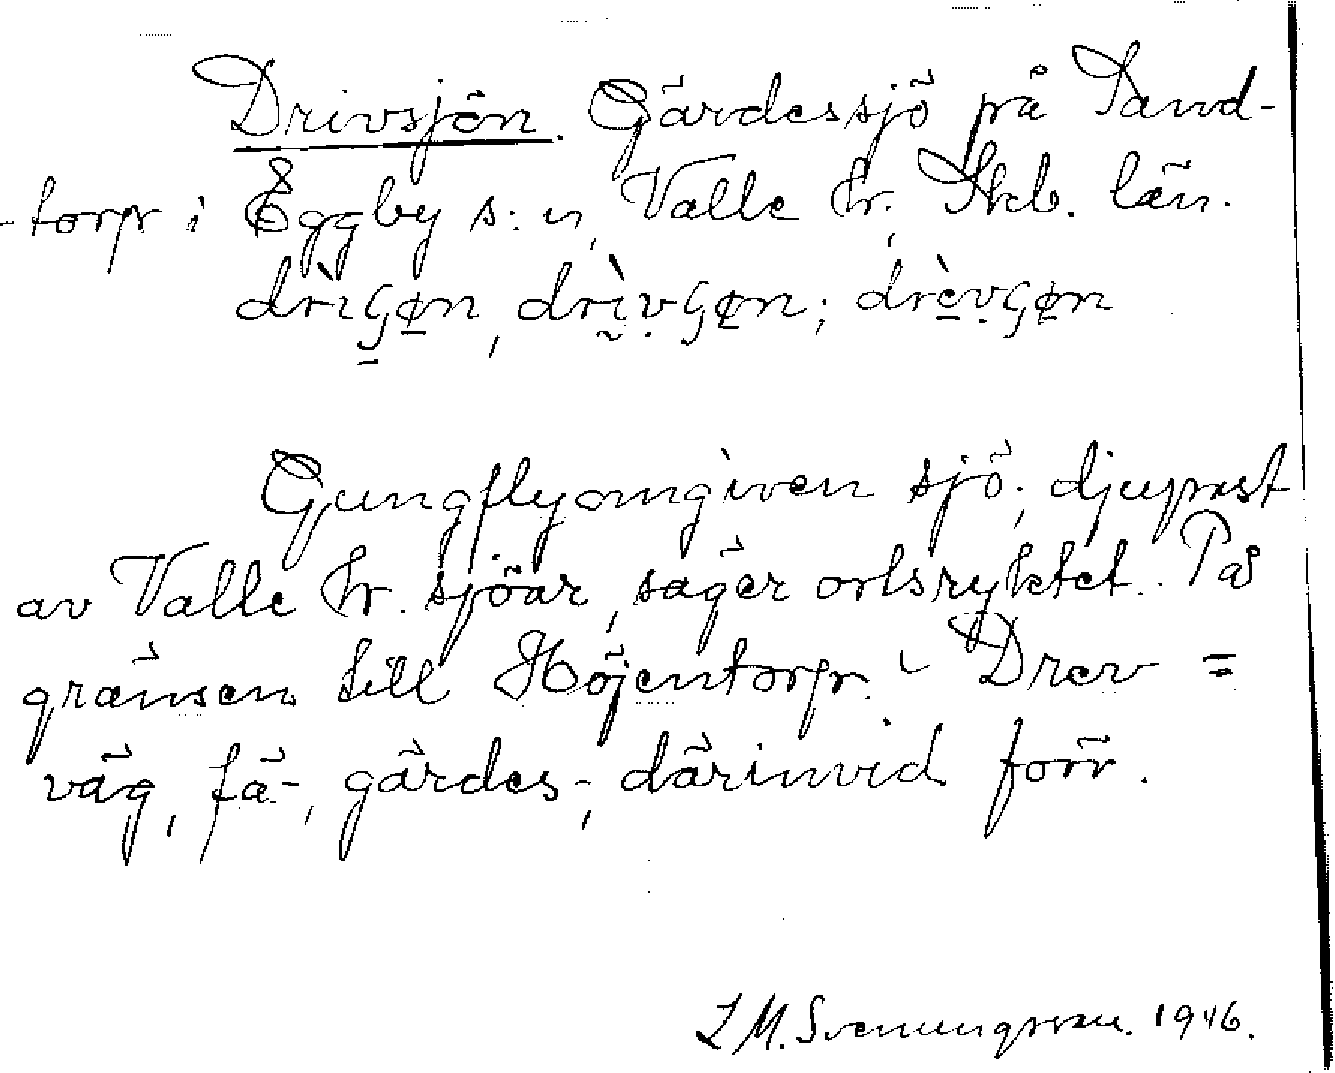 Drivsjön. Gärdessjö på Sand-
-torp i Eggby s:n, Valle hr, Skb. län.
drìɕøn, drìvɕøn; drèvɕøn
Gungflyomgiven sjö, djupast
av Valle hr. sjöar, säger ortsryktet. På
gränsen till Höjentorp. - Drev =
väg, fä-, gärdes-, därinvid förr.
L M. Svenungsson. 1946.